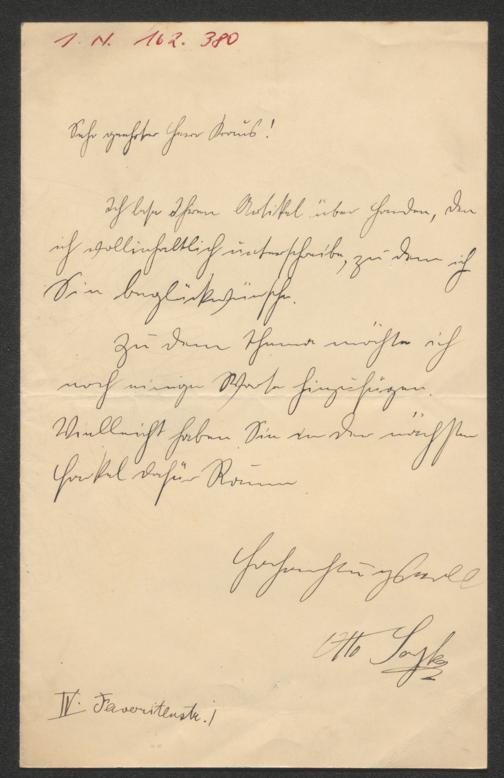 I. N. 162. 380
Sehr geehrter Herr Kraus!
Ich lese Ihren Artikel über Harden, den
ich vollinhaltlich unterschreibe, zu dem ich
Sie beglückwünsche.
Zu dem Thema möchte ich
noch einige Worte hinzufügen.
Vielleicht haben Sie in der nächsten
Fackel dafür Raum
Hochachtungsvoll
Otto Soyka
IV. Favoritenstr. 1